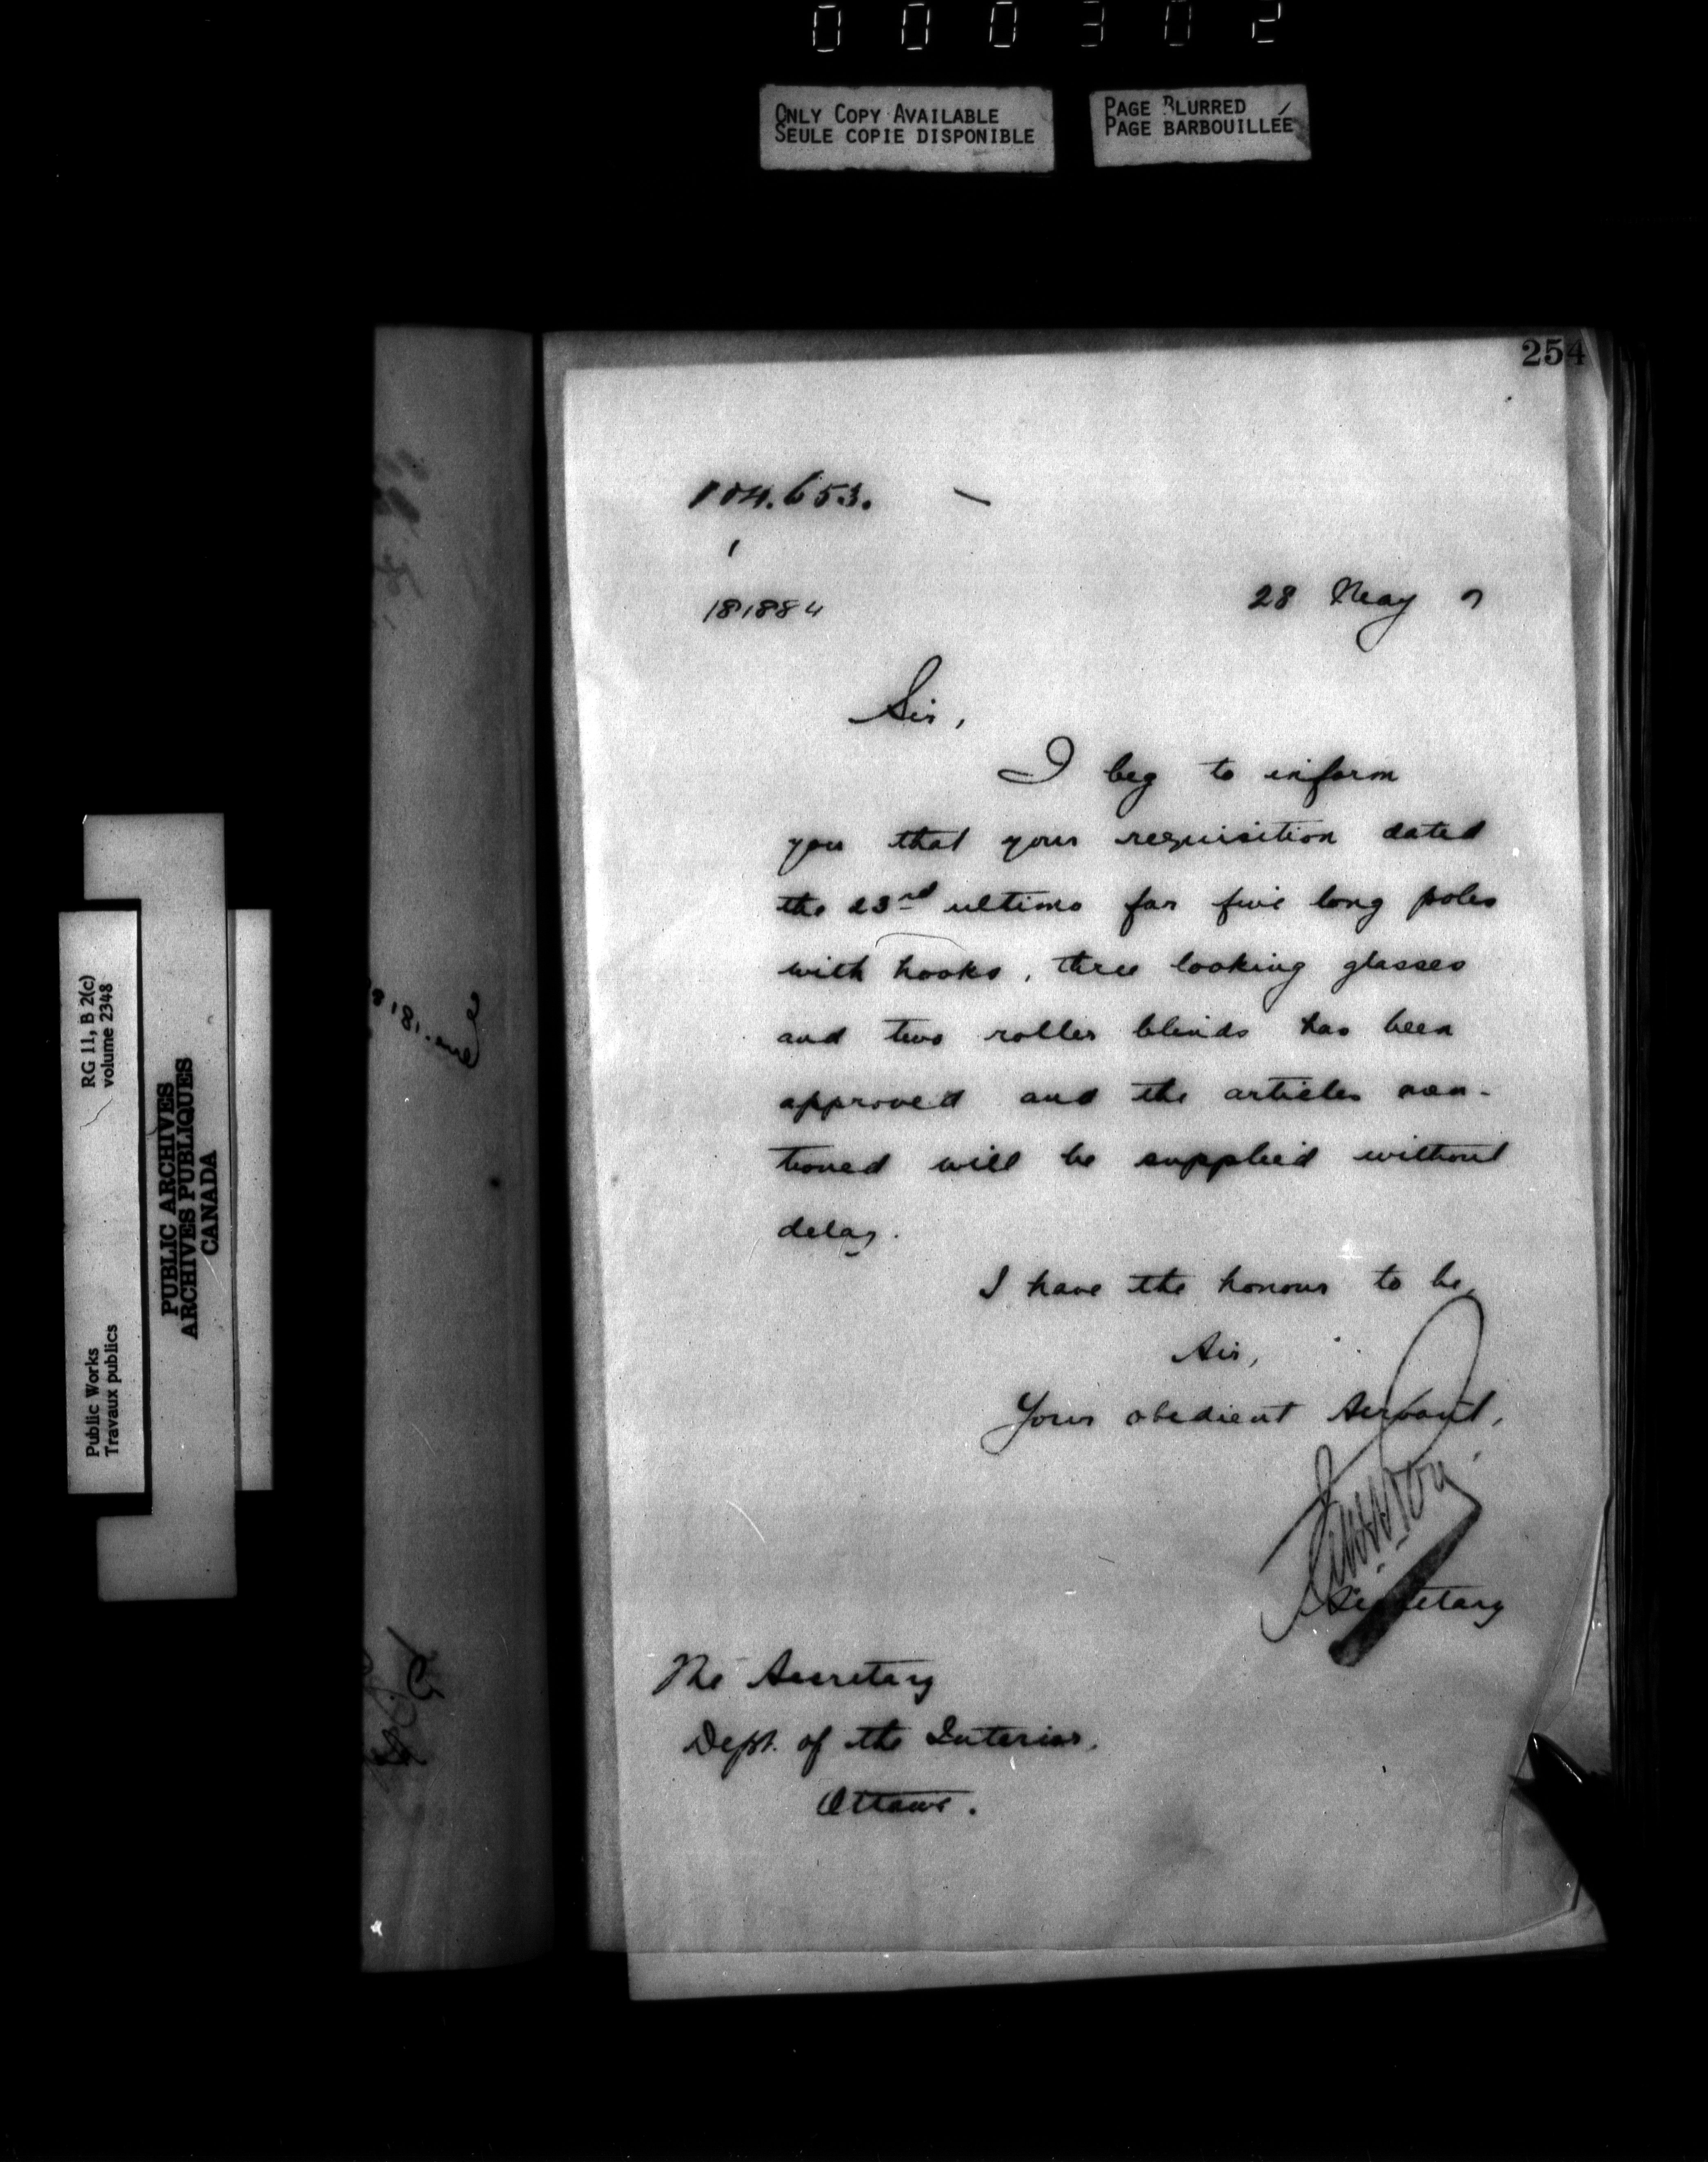 000302
ONLY COPY AVAILABLE
SEULE COPIE DISPONIBLE
PAGE BLURRED
PAGE BARBOUILLÉE
254
104.653. —
1
181884
28 May 7
Sir,
I beg to inform
you that your requisition dated
the 23rd ultimo for five long poles
with hooks, three looking glasses
and two roller blinds has been
approved and the articles men-
tioned will be supplied without
delay.
I have the honour to be,
Sir,
Your obedient Servant,
Secretary
The Secretary
Dept. of the Interior,
Ottawa.
RG 11, B 2(c)
volume 2348
Public Works
Travaux publics
PUBLIC ARCHIVES
ARCHIVES PUBLIQUES
CANADA